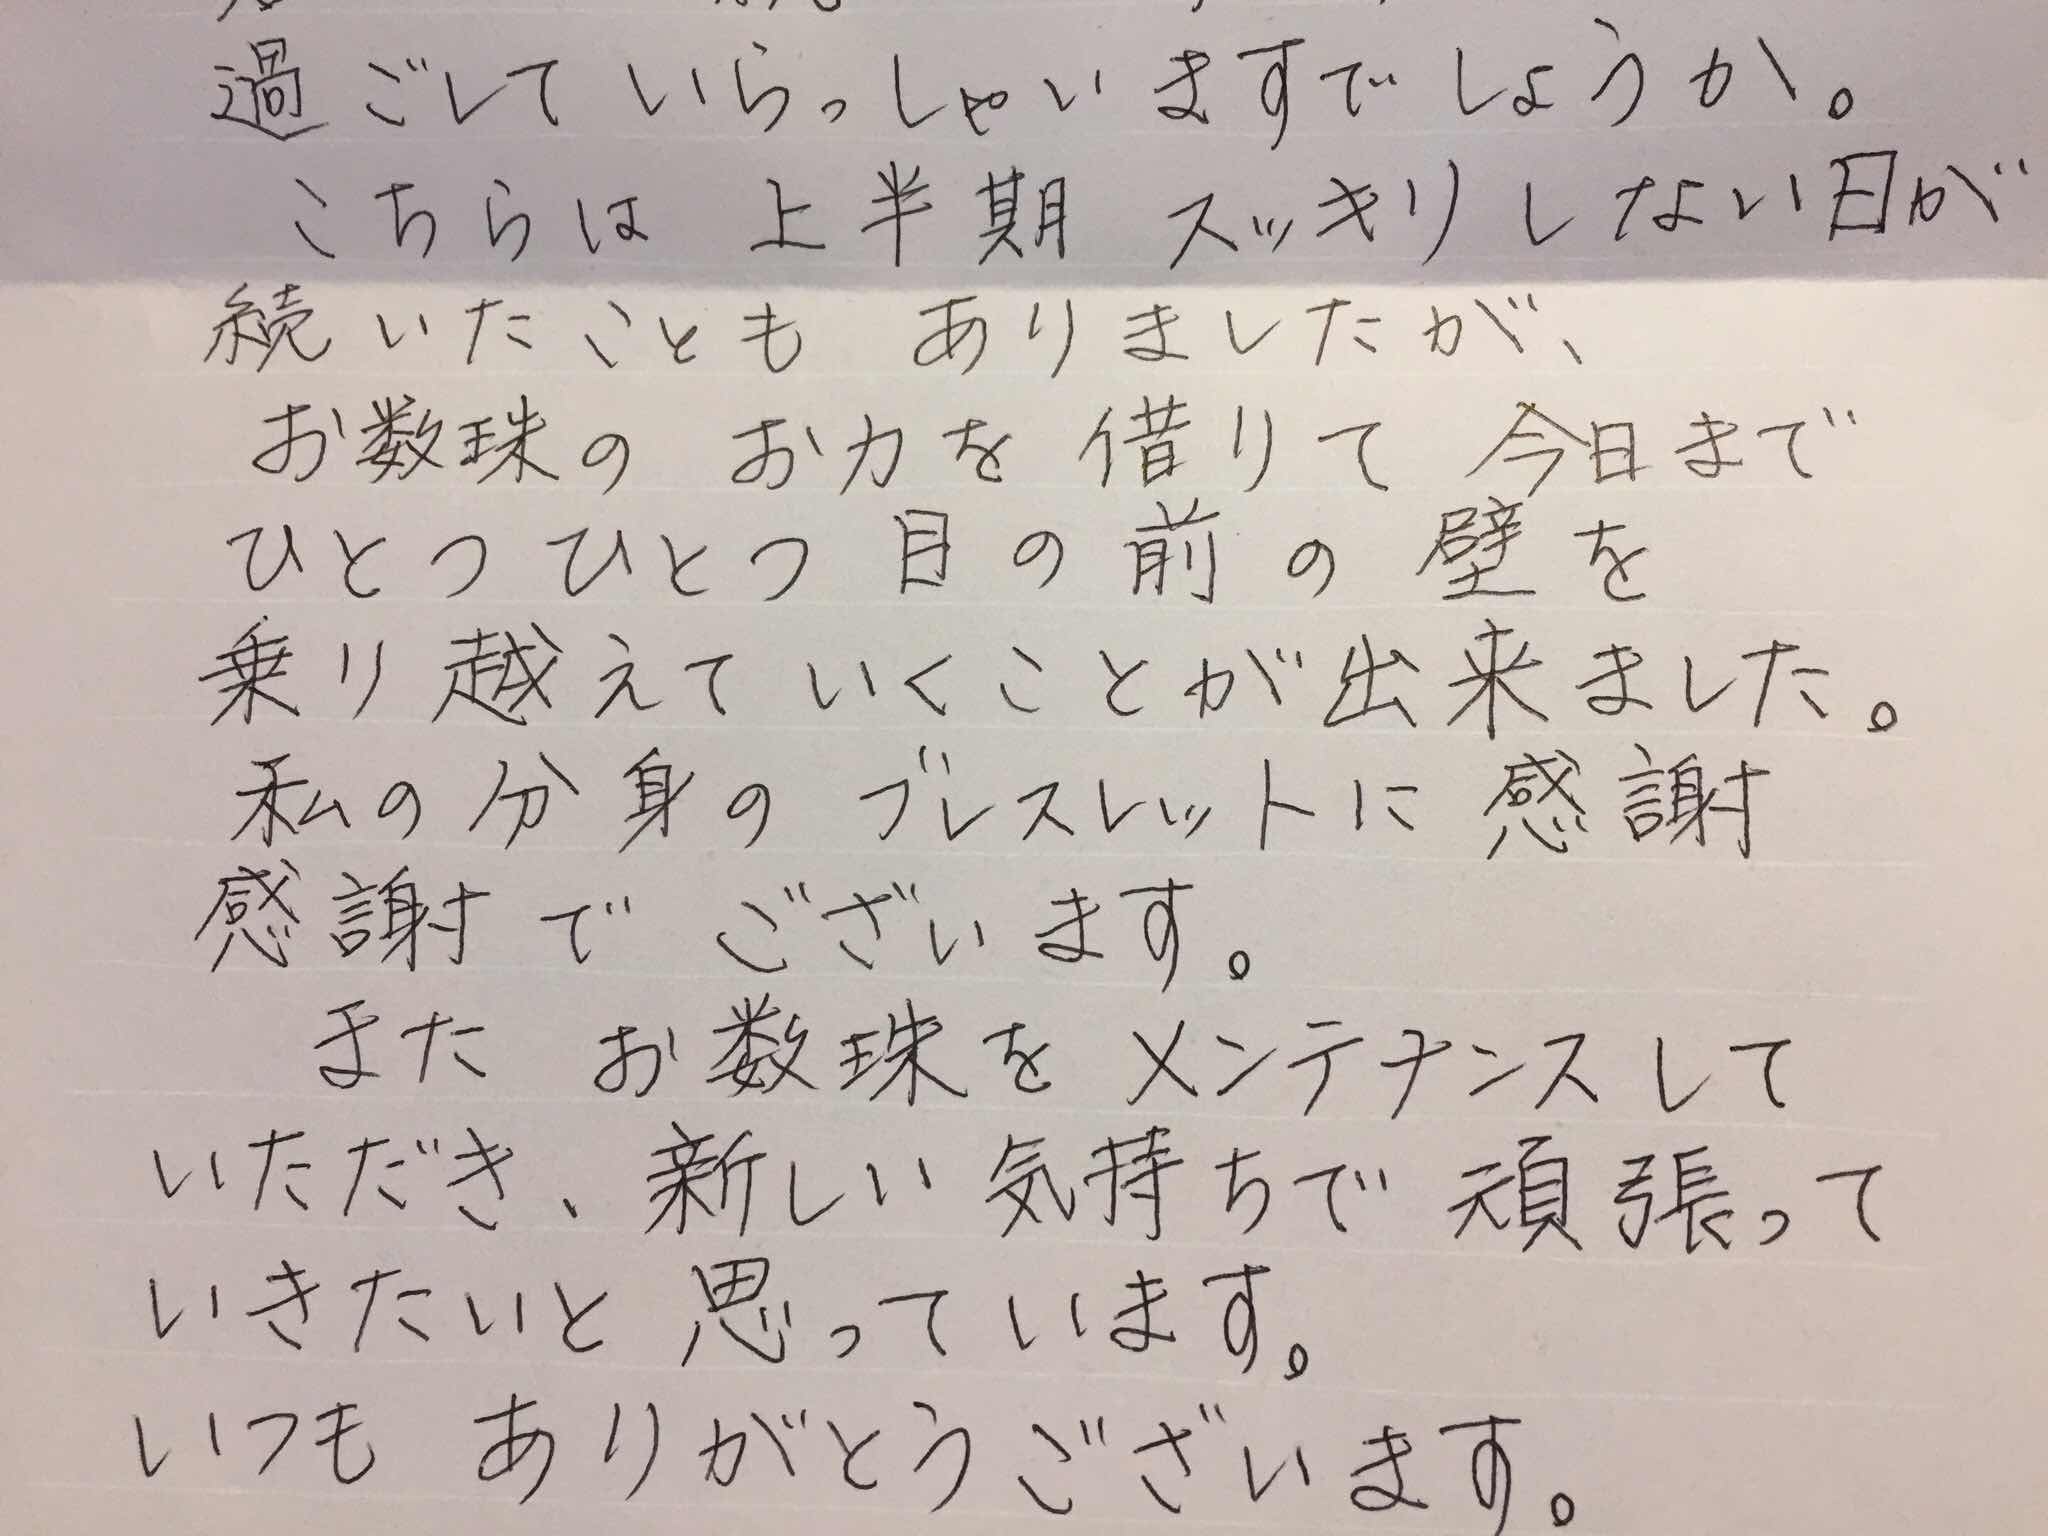 過ごしていらっしゃいますでしょうか。
こちらは 上半期 スッキリしない日が
続いたことも ありましたが、
お数珠の お力を 借りて 今日まで
ひとつひとつ 目の前の壁を
乗り越えていくことが出来ました。
私の分身の ブレスレットに 感謝
感謝で ございます。
また お数珠を メンテナンスして
いただき、新しい気持ちで 頑張って
いきたいと 思っています。
いつも ありがとうございます。